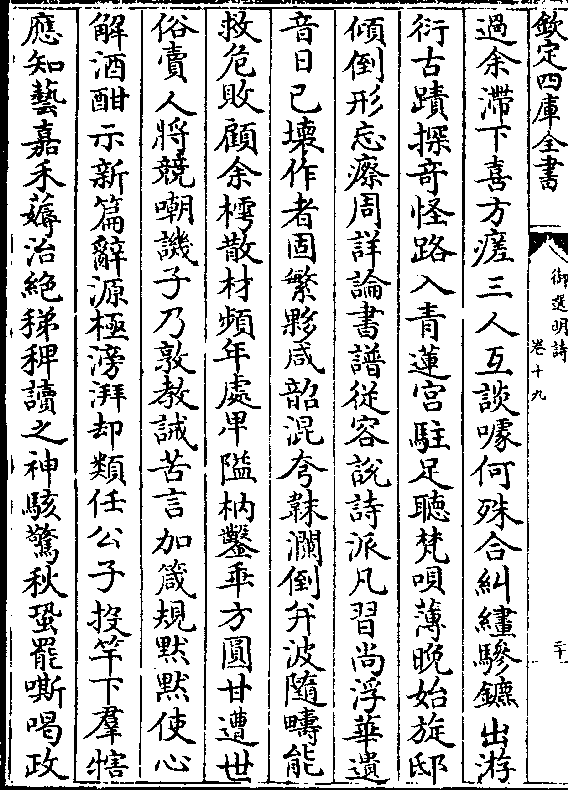 欽定四庫全書
御選明詩
卷十九
二十
過余滯下喜方瘥三人互談噱何殊合糾纆驂鑣出游
衍古蹟探奇怪路入青蓮宮駐足聽梵唄薄晚始旋邸
傾倒形忘瘵周詳論書譜從容說詩派凡習尚浮華遺
音日已壞作者固繁夥咸韶混夸韎瀾倒弁波隨疇能
救危敗顧余樗散材頻年處甲隘枘鑿乖方圓甘遭世
俗賣人將競嘲譏子乃敦教誡苦言加箴規默默使心
解酒酣示新篇辭源極滂湃却類任公子投竿下羣犗
應知藝嘉禾薅治絕稊稗讀之神駭驚秋蛩罷嘶喝政